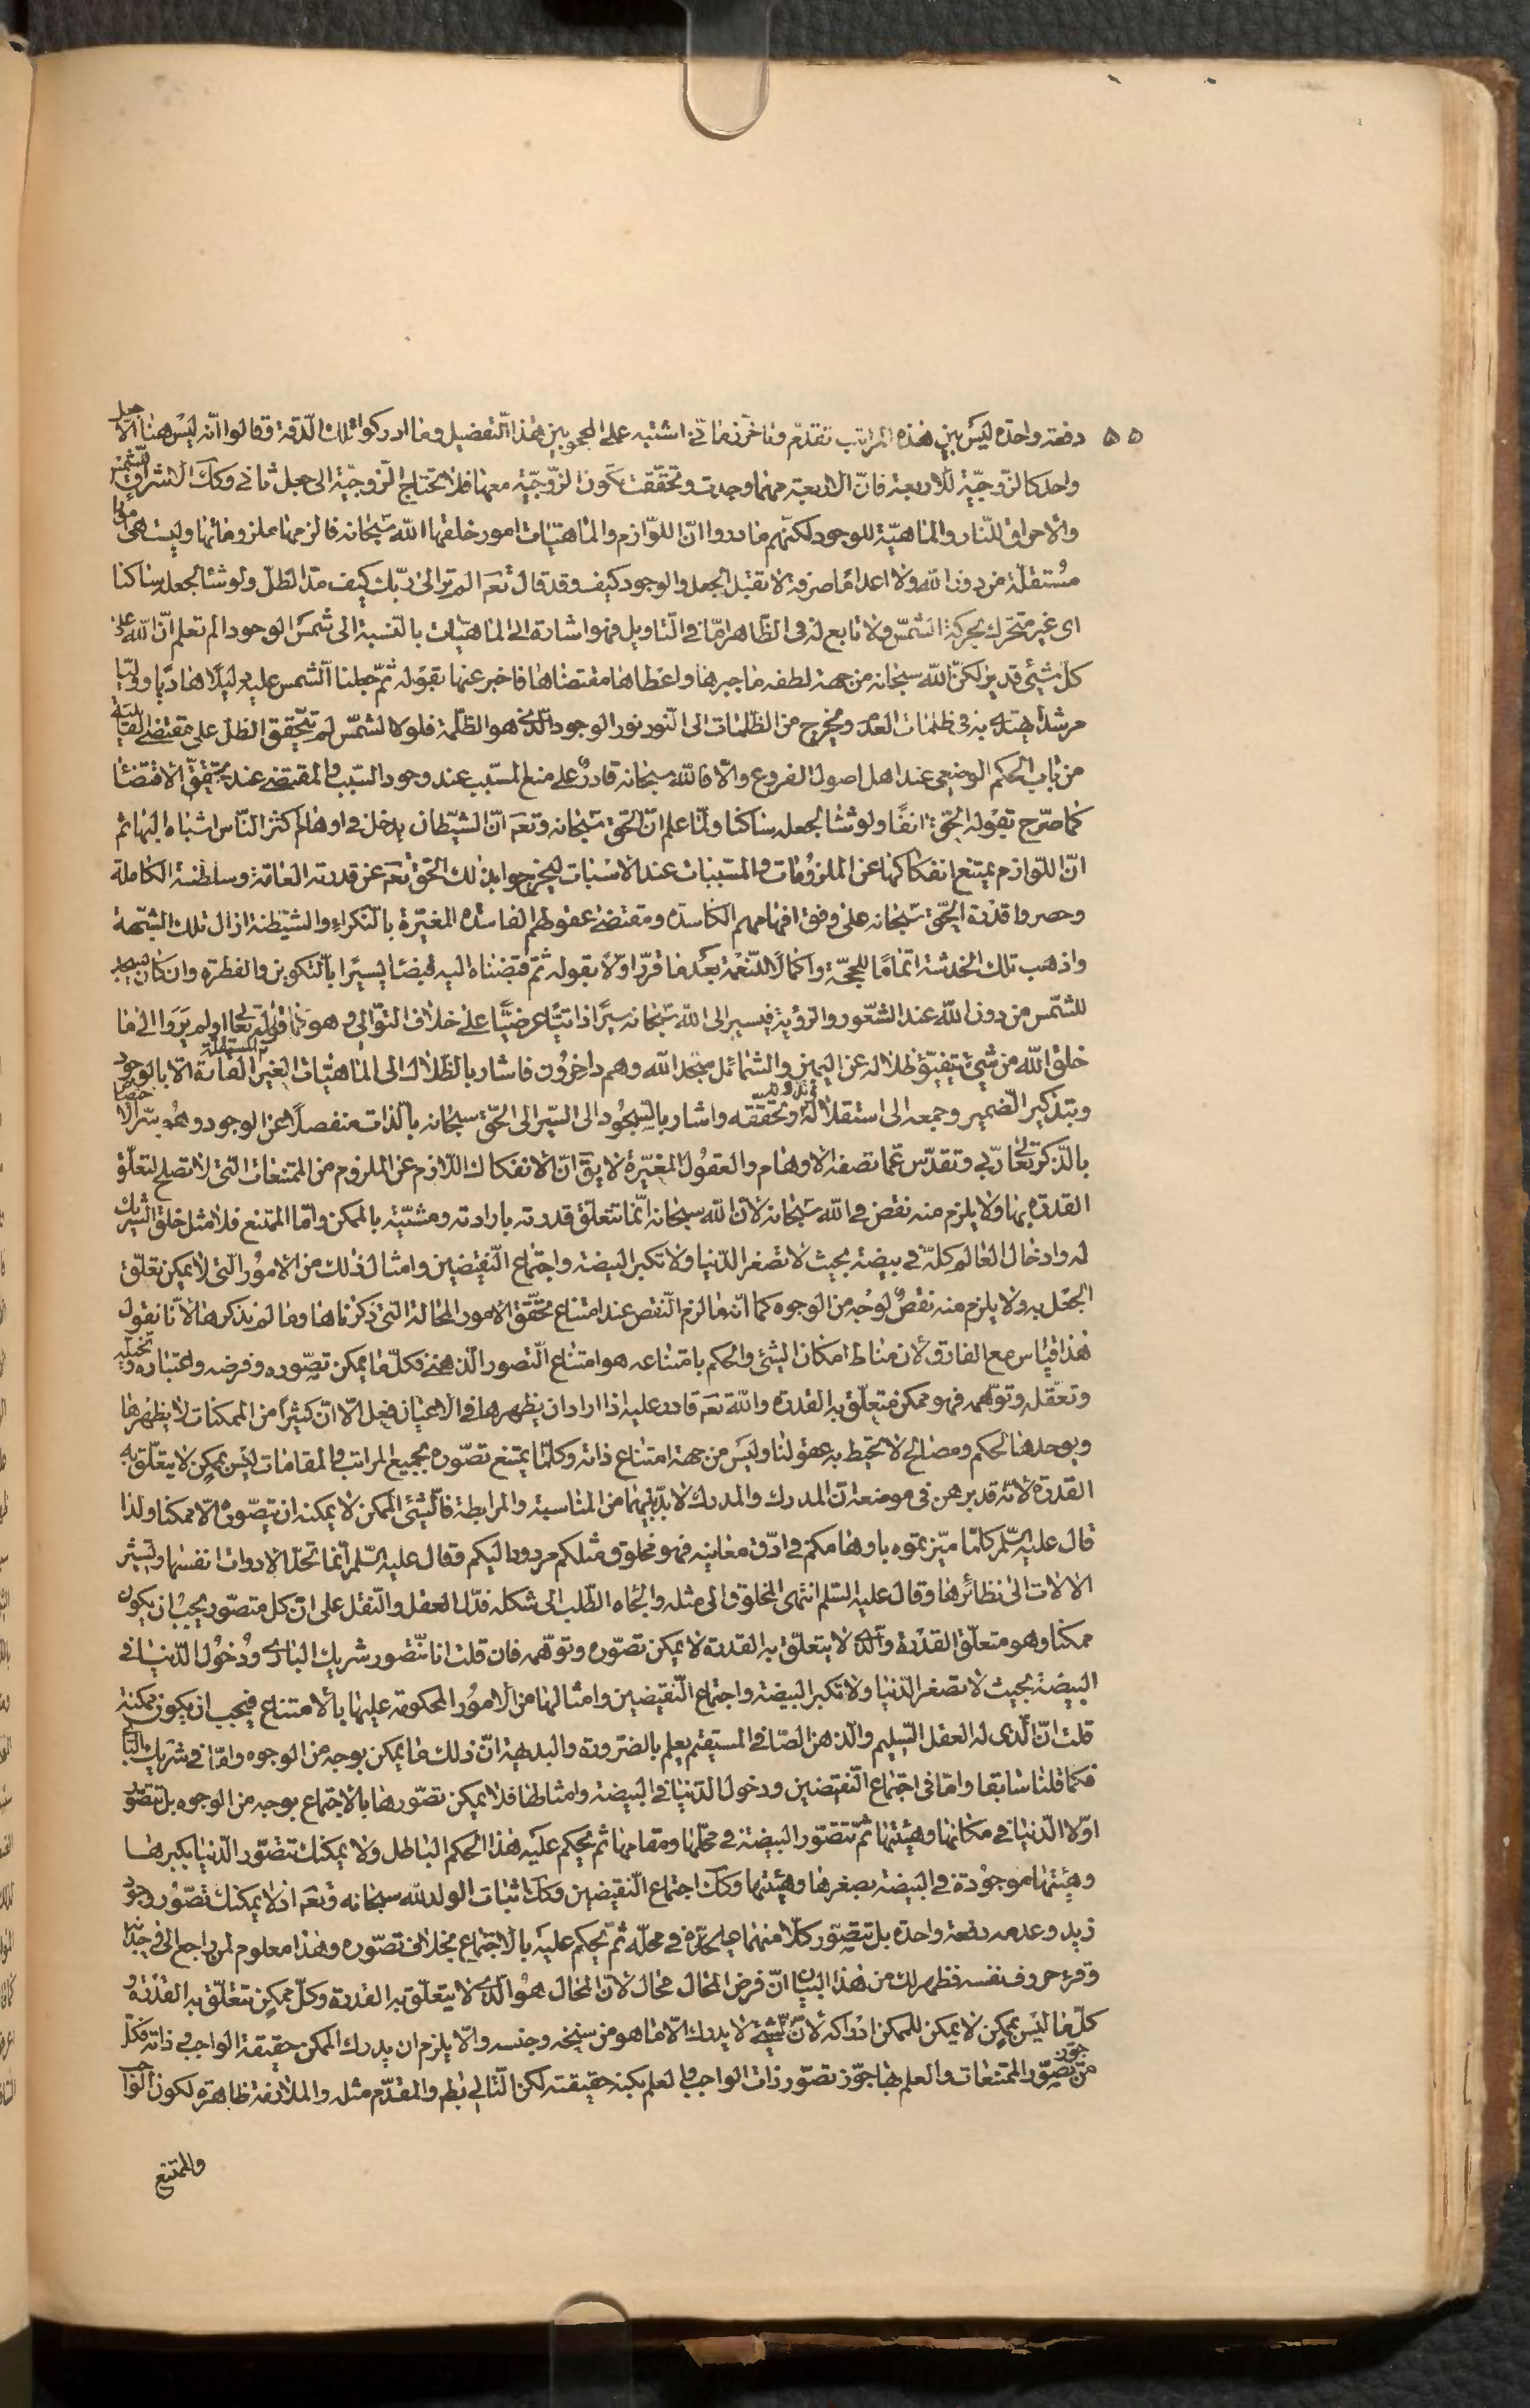 ٥٥ دفعة واحدة ليس بين هذه المراتب تقدّم وتأخّر زماني اشتبه على المحجوبين هذا التفصيل وما ادركوا تلك الدقة وقالوا انّه ليس هنا الّا جعل
واحد كالزوجيّة للاربعة فانّ الاربعة مهما وجدت وتحققت تكون الزوجيّة معها فلا تحتاج الزوجيّة الى جعل ثاني وكك الاشراق للشمس
والاحراق للنار والماهيّة للوجود لكنّهم ما دروا انّ اللوازم والماهيّات امور خلقها الله سبحانه فالزمها ملزوماتها وليست هي امورا
مستقلّة من دون الله ولا اعداما صرفة لا تقبل الجعل والوجود كيف وقد قال تعم الم تر الى ربّك كيف مدّ الظلّ ولو شاء لجعله ساكنا
اى غير متحرّك بحركة الشمس ولا تابع له في الظاهر امّا في التاويل فهو اشارة الى الماهيّات بالنسبة الى شمس الوجود الم تعلم انّ الله على
كلّ شيئ قدير لكنّ الله سبحانه من جهة لطفه ما جبرها واعطاها مقتضاها فاخبر عنها بقوله ثمّ جعلنا الشمس عليه دليلا هاديا ووليّا
مرشدا يهتدى به في ظلمات العدم ومخرج من الظلمات الى النور نور الوجود الذى هو الظلّمة فلولا الشمس لم يتحقق الظل على مقتضى القابلية
من باب الحكم الوضعي عند اهل اصول الفروع والّا فالله سبحانه قادر على منع المسبب عند وجود السبب والمقتضى عند تحقّق الاقتضاء
كما صرّح بقوله الحق انفا ولو شاء لجعله ساكنا ولمّا علم الحقّ سبحانه وتعم انّ الشيطان يدخل في اوهام اكثر الناس اشباه البهائم
انّ اللوازم يمتنع انفكاكها عن الملزومات والمسببات عند الاسباب ليخرجوا بذلك الحق تعم عن قدرته العامّة وسلطنته الكاملة
وحصروا قدرة الحقّ سبحانه على وفق افهامهم الكاسدة ومقتضى عقولهم الفاسدة المغيّرة بالنكراء والشيطنة ازال تلك الشبهة
واذهب تلك الخدشة اتماما للحجّة واكمالا للنعمة بعد ما قرّر اوّلا بقوله ثمّ قبضناه الينا قبضا يسيرا بالتكوين والفطرة وان كان يسجد
للشمس من دون الله عند الشعور والرؤية فيسير الى الله سبحانه سيرا ذاتيّا عرضيّا على خلاف التوالي وهو كما قوله تعالى اولم يروا الى ما
خلق الله من شيئ يتفيّؤ ظلاله عن اليمين والشمائل سجّدا لله وهم داخرون فاشار بالظلال الى الماهيّات الغير القارة المستقلة الّا بالوجود
وبتذكير الضمير وجمعه الى استقلاله وتحققه واشار بالسجود الى السّير الى الحقّ سبحانه بالذات منفصلا عن الوجود وهو سرّ الاختصاص
بالذّكر تعالى ربّي وتقدّس عمّا تصفه الاوهام والعقول المغيّرة لا يق انّ الانفكاك اللّازم عن الملزوم من الممتنعات التي لا تصلح لتعلّق
القدرة بها ولا يلزم منه نقض في الله سبحانه لانّ الله سبحانه انّما تتعلق قدرته بارادته ومشيّته بالممكن وامّا الممتنع فلا مثل خلق الشريك
له وادخال العالم كلّه في بيضة بحيث لا تصغر الدّنيا ولا تكبر البيضة واجتماع النقيضين وامثال ذلك من الامور التي لا يمكن تعلّق
الجعل به ولا يلزم منه نقص لوجه من الوجوه كما انّه ما لزم النقص عند امتناع تحقّق الامور المحالة التي ذكرناها وما لم نذكرها لانّا نقول
هذا قياس مع الفارق لان مناط امكان الشيئ والحكم بامتناعه هو امتناع التصور الذهني فكلّ ما يمكن تصوّره وفرضه واعتباره وتخيّله
وتعقّله وتوهّمه فهو ممكن متعلّق به القدرة والله تعم قادر عليه اذا اراد ان يظهرها في الاعيان فعل الّا انّ كثيرا من الممكنات لا يظهرها
ويوجدها لحكم ومصالح لا تحيط به عقولنا وليس من جهة امتناع ذاته وكلّما يمتنع تصوّره بجميع المراتب والمقامات ليس بممكن لا يتعلّق به
القدرة لانّه قد برهن في موضعه انّ المدرك والمدرك لا بدّ بينهما من المناسبة والمرابطة فالشيئ الممكن لا يمكنه ان يتصوّر الّا ممكنا ولذا
قال عليه السّلم كلّما ميّزتموه باوهامكم في ادقّ معانيه فهو مخلوق مثلكم مردود اليكم وقال عليه السّلم انّما تحدّ الادوات انفسها وتشير
الآلات الى نظائرها وقال عليه السّلم انتهى المخلوق الى مثله والجأه الطّلب الى شكله فدلّ العقل والنقل على انّ كلّ متصوّر يجب ان يكون
ممكنا وهو متعلّق القدرة والذى لا يتعلّق به القدرة لا يمكن تصوّره وتوهّمه فان قلت انا نتصور شريك البارى ودخول الدّنيا في
البيضة بحيث لا تصغر الدّنيا ولا تكبر البيضة واجتماع النقيضين وامثالها من الامور المحكومة عليها بالامتناع فيجب ان يكون ممكنة
قلت انّ الّذى له العقل السّليم والذهن الصّافى المستقيم يعلم بالضرورة والبديهة انّ ذلك ما يمكن بوجه من الوجوه وامّا في شريك البارى
فكما قلنا سابقا وامّا في اجتماع النقيضين ودخول الدّنيا في البيضة وامثالها فلا يمكن تصوّرها بالاجتماع بوجه من الوجوه بل تتصوّر
اوّلا الدّنيا في مكانها وهيئتها ثمّ تتصوّر البيضة في محلّها ومقامها ثم يحكم عليه هذا الحكم الباطل ولا يمكنك تتصوّر الدّنيا بكبرها
وهيئتها موجودة في البيضة بصغرها وهيئتها وكك اجتماع النقيضين وكك اثبات الولد لله سبحانه وتعم اذ لا يمكنك تصوّر وجود
زيد وعدمه دفعة واحدة بل تتصوّر كلّا منهما على حدّه في محلّه ثمّ تحكم عليه بالاجتماع بخلاف تصوّره وهذا معلوم لمن راجع الى وجدانه
وقرء حروف نفسه فظهر لك من هذا البيان انّ فرض المحال محال لانّ المحال هو الّذى لا يتعلّق به القدرة وكلّ ممكن تتعلّق به القدرة و
كلّ ما ليس بممكن لا يمكن للممكن ادراكه لانّ الشيئ لا يدرك الّا ما هو من سنخه وجنسه والّا يلزم ان يدرك الممكن حقيقة الواجب في ذاته فكلّ
من جوّز تصوّر الممتنعات والعلم بها جوّز تصوّر ذات الواجب والعلم بكنه حقيقته لكن التالي بط والمقدّم مثله والملازمة ظاهرة لكون الواجب
والممتنع